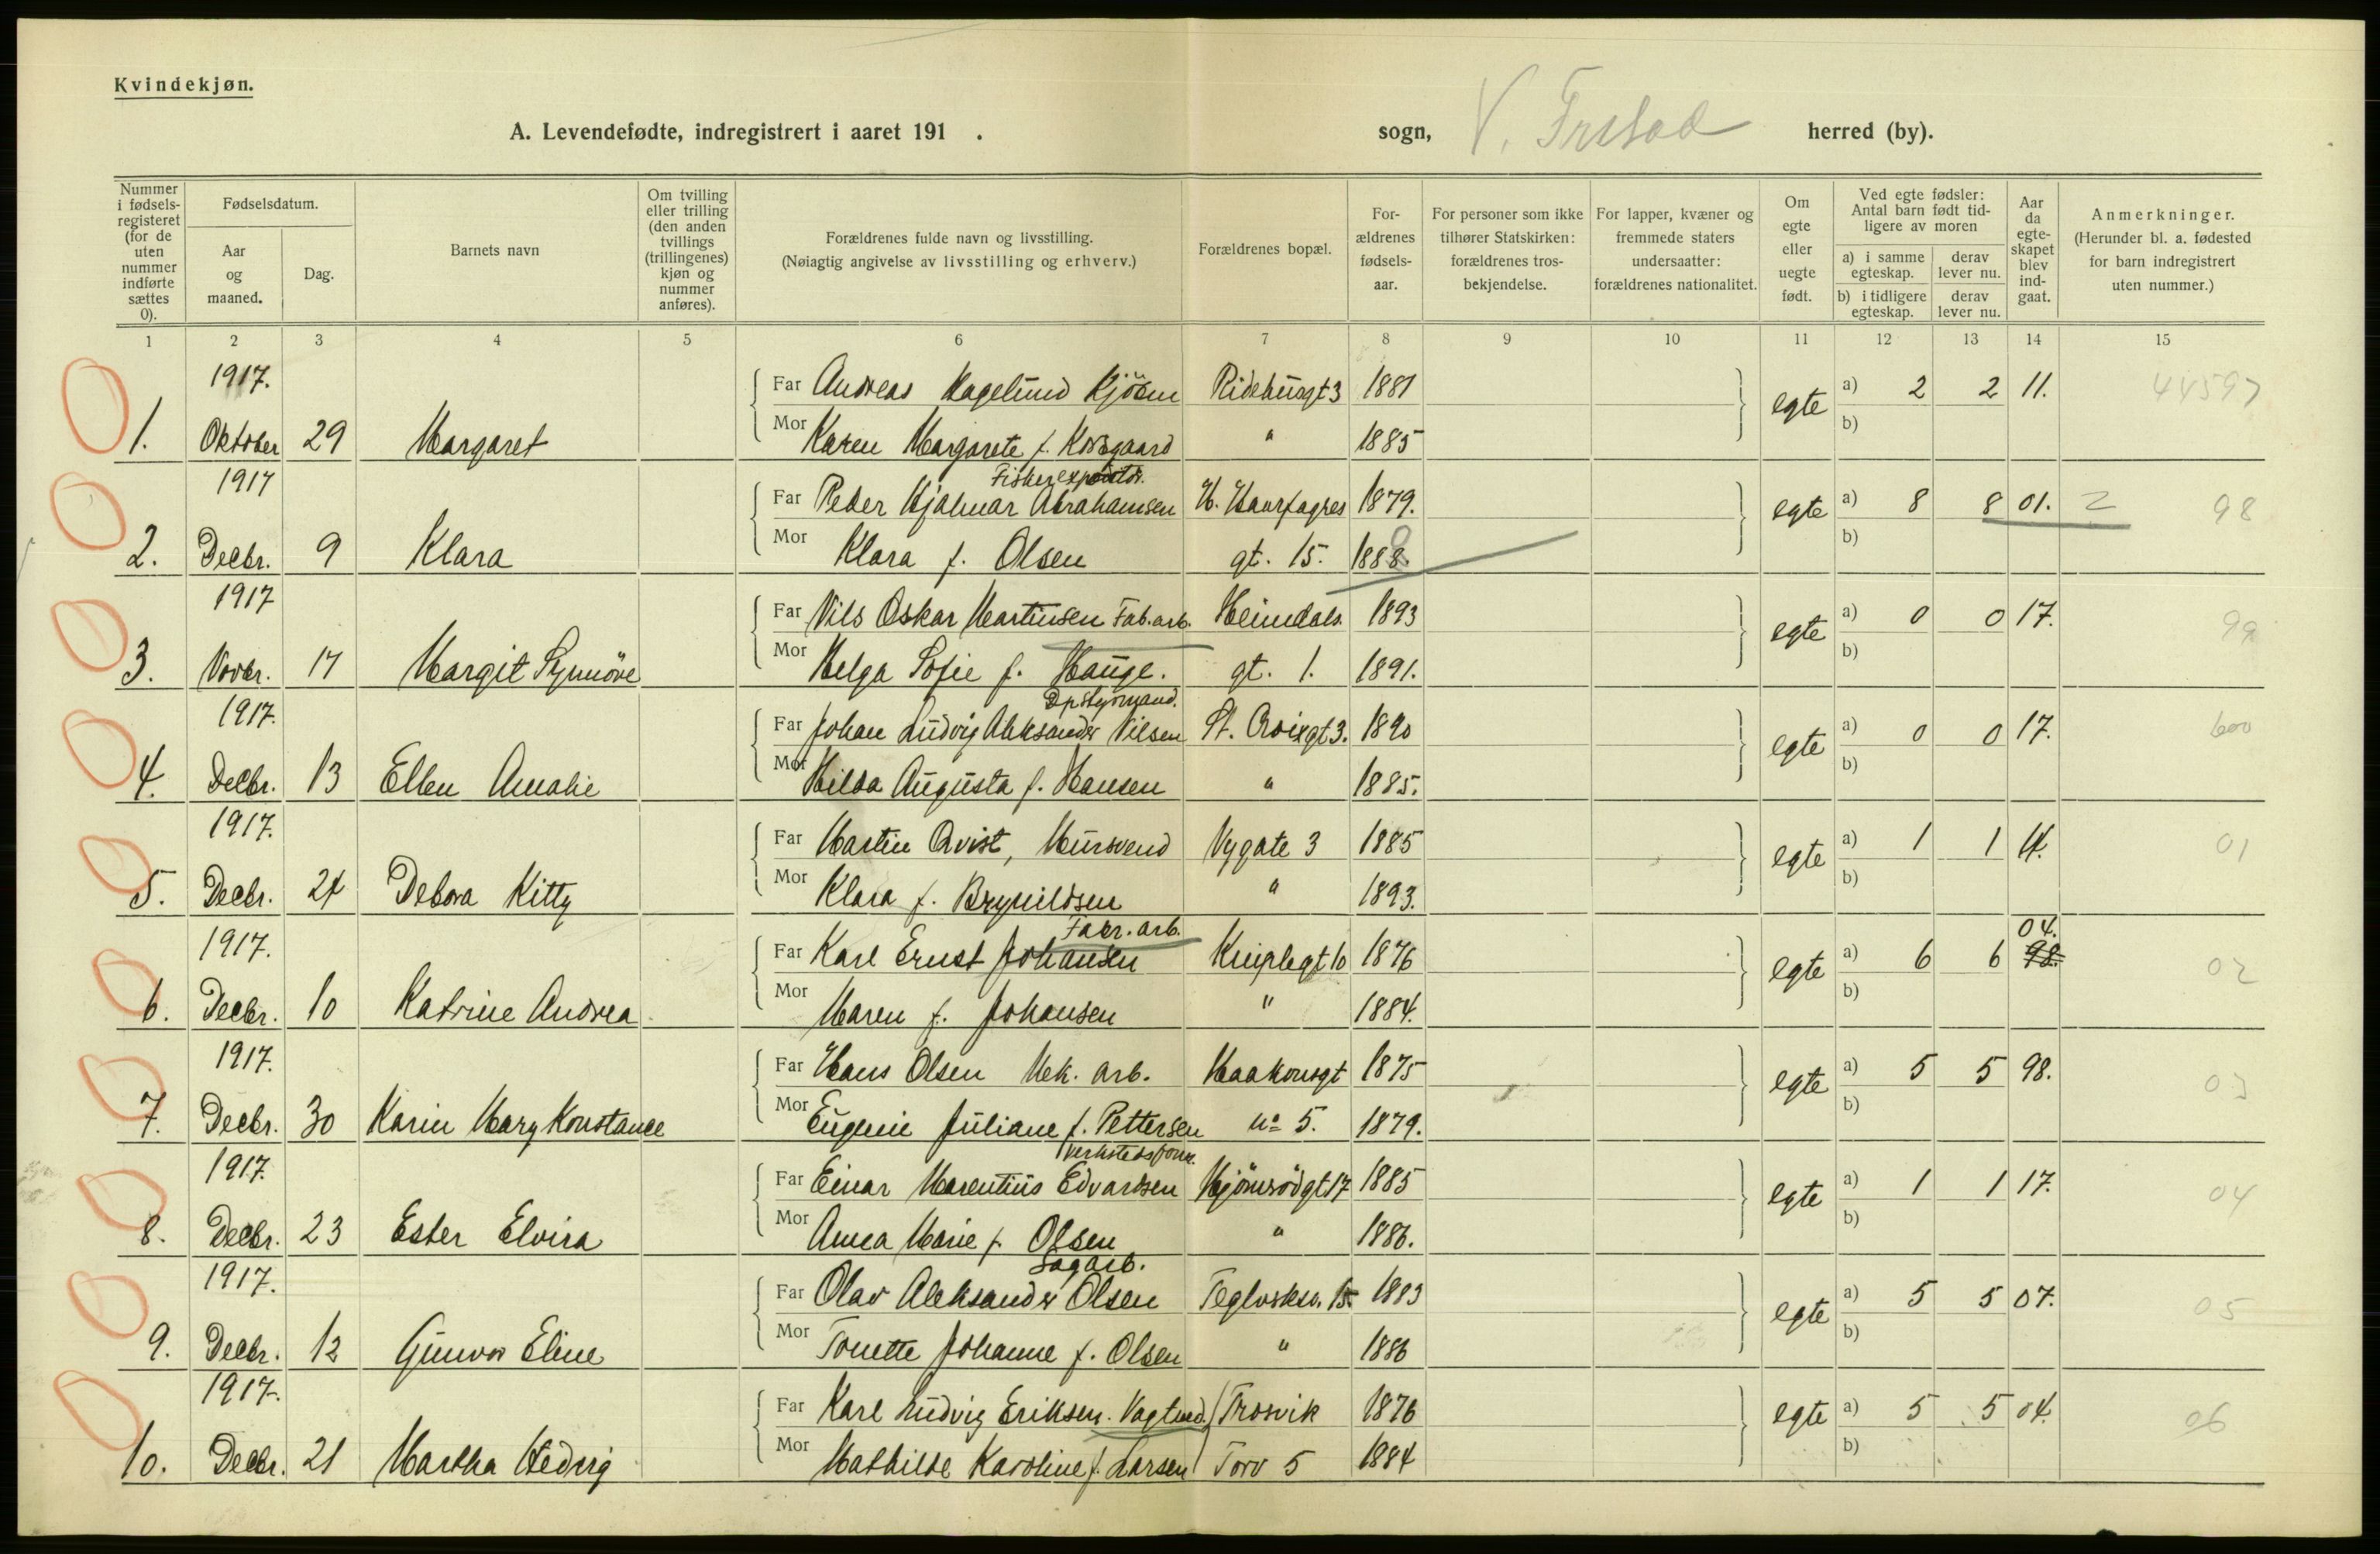 Kvindekjøn.
A. Levendefødte, indregistrert i aaret 191 . sogn, V. Frstad herred (by).
Nummer i fødselsregisteret (for de uten nummer indførte sættes 0).
Fødselsdatum.
Aar og maaned.
Dag.
Barnets navn
Om tvilling eller trilling (den anden tvillings (trillingenes) kjøn og nummer anføres).
Forældrenes fulde navn og livsstilling.
(Nøiagtig angivelse av livsstilling og erhverv.)
Forældrenes bopæl.
For-ældrenes fødsels-aar.
For personer som ikke tilhører Statskirken: forældrenes tros-bekjendelse.
For lapper, kvæner og fremmede staters undersaatter: forældrenes nationalitet.
Om egte eller uegte født.
Ved egte fødsler: Antal barn født tid-ligere av moren
a) i samme egteskap.
derav lever nu.
b) i tidligere egteskap.
derav lever nu.
Aar da egte-skapet blev ind-gaat.
Anmerkninger.
(Herunder bl. a. fødested for barn indregistrert uten nummer.)
1 2 3 4 5 6 7 8 9 10 11 12 13 14 15
1917. Far Andreas Hagelund Kjöen Ridehusgt 3 1881 egte a) 2 2 11. 44597
1. Oktober 29 Margaret Mor Karen Margarete f. Korsgaard " 1885 b)
Fiskeexpeditör.
1917 Far Peder Hjalmar Abrahamsen H. Haarfagres 1879. egte a) 8 8 01. 2 98
2. Decbr. 9 Klara Mor Klara f. Olsen gt. 15. 1888. b)
1917 Far Nils Oskar Martinsen Fab.arb. Heimdals 1893 egte a) 0 0 17. 99
3. Novbr. 17 Margit Synnöve Mor Helga Sofie f. Hauge. gt. 1. 1891. b)
Dpstyrmand.
1917. Far Johan Ludvig Aleksander Nilsen St. Croixgt 3. 1890 egte a) 0 0 17. 600
4. Decbr. 13 Ellen Amalie Mor Hilda Augusta f. Hansen " 1885. b)
1917. Far Martin Qvist, Mursvend Nygate 3 1885 egte a) 1 1 14. 01
5. Decbr. 24 Debora Kitty Mor Klara f. Brynildsen " 1893. b)
Fabr. arb. 04.
1917. Far Karl Ernst Johansen Kniplegt 10 1876 egte a) 6 6 98. 02
6. Decbr. 10 Katrine Andrea Mor Maren f. Johansen " 1884. b)
1917. Far Hans Olsen Mek. arb. Haakonsgt 1875 egte a) 5 5 98. 03
7. Decbr. 30 Karin Mary Konstance Mor Eugenie Juliane f. Pettersen no 5. 1879. b)
Verkstedsform.
1917. Far Einar Marentius Edvardsen Mjörnrödgt 17 1885 egte a) 1 1 17. 04
8. Decbr. 23 Ester Elvira Mor Anna Marie f. Olsen " 1886. b)
Sagarb.
1917. Far Olav Aleksander Olsen Teglverksv. 15 1883 egte a) 5 5 07. 05
9. Decbr. 12 Gunvor Eline Mor Tonette Johanne f. Olsen " 1886 b)
1917. Far Karl Ludvig Eriksen. Vagtmd. Trosvik 1876 egte a) 5 5 04. 06
10. Decbr. 21 Martha Hedvig Mor Mathilde Karoline f. Larsen Torv 5 1884 b)